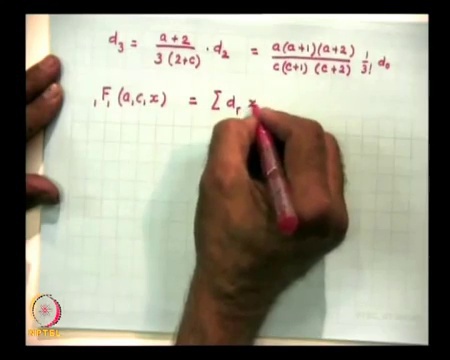 d₃ = a+2 / 3(2+c) · d₂ = a(a+1)(a+2) / c(c+1)(c+2) 1/3! d₀
₁F₁(a,c,x) = Σ dᵣ x
NPTEL